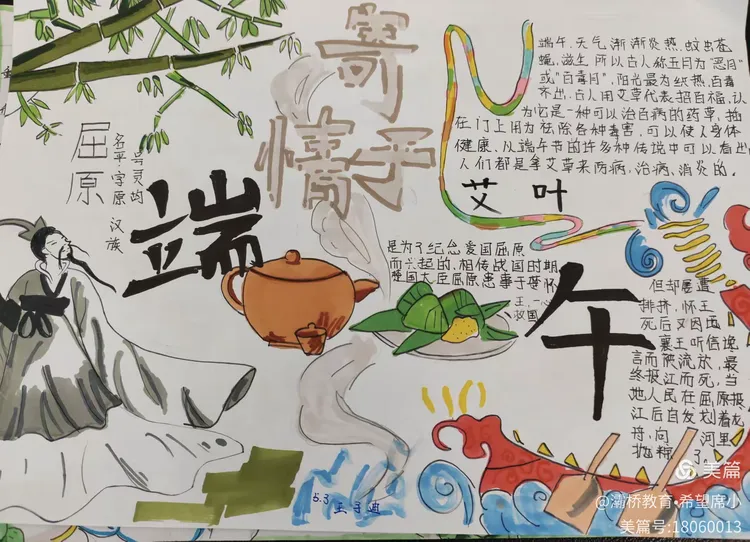 寄
情于
端
午
屈原
名平·字原
号灵均
汉族
端午,天气渐渐炎热,蚊虫苍
蝇,滋生,所以古人称五月为"恶月"
或"百毒月",阳光最为炽热,百毒
齐出,古人用艾草代表招百福,认
为它是一种可以治百病的药草,插
在门上用为祛除各种毒害,可以使人身体
健康,从端午节的许多种传说中可以看出
人们都是拿艾草来两病,治病,消炎的。
艾叶
是为了纪念爱国屈原
而兴起的,相传战国时期
楚国大臣屈原忠事于楚怀
王,一心
救国
但却屡遭
排挤,怀王
死后又因
襄王听信谗
言而被流放,最
终报江而死,当
地人民在屈原报
江后自发划着龙
舟,向 河里
抛粽 了。
5.3
美篇
@灞桥教育·希望席小
美篇号:18060013